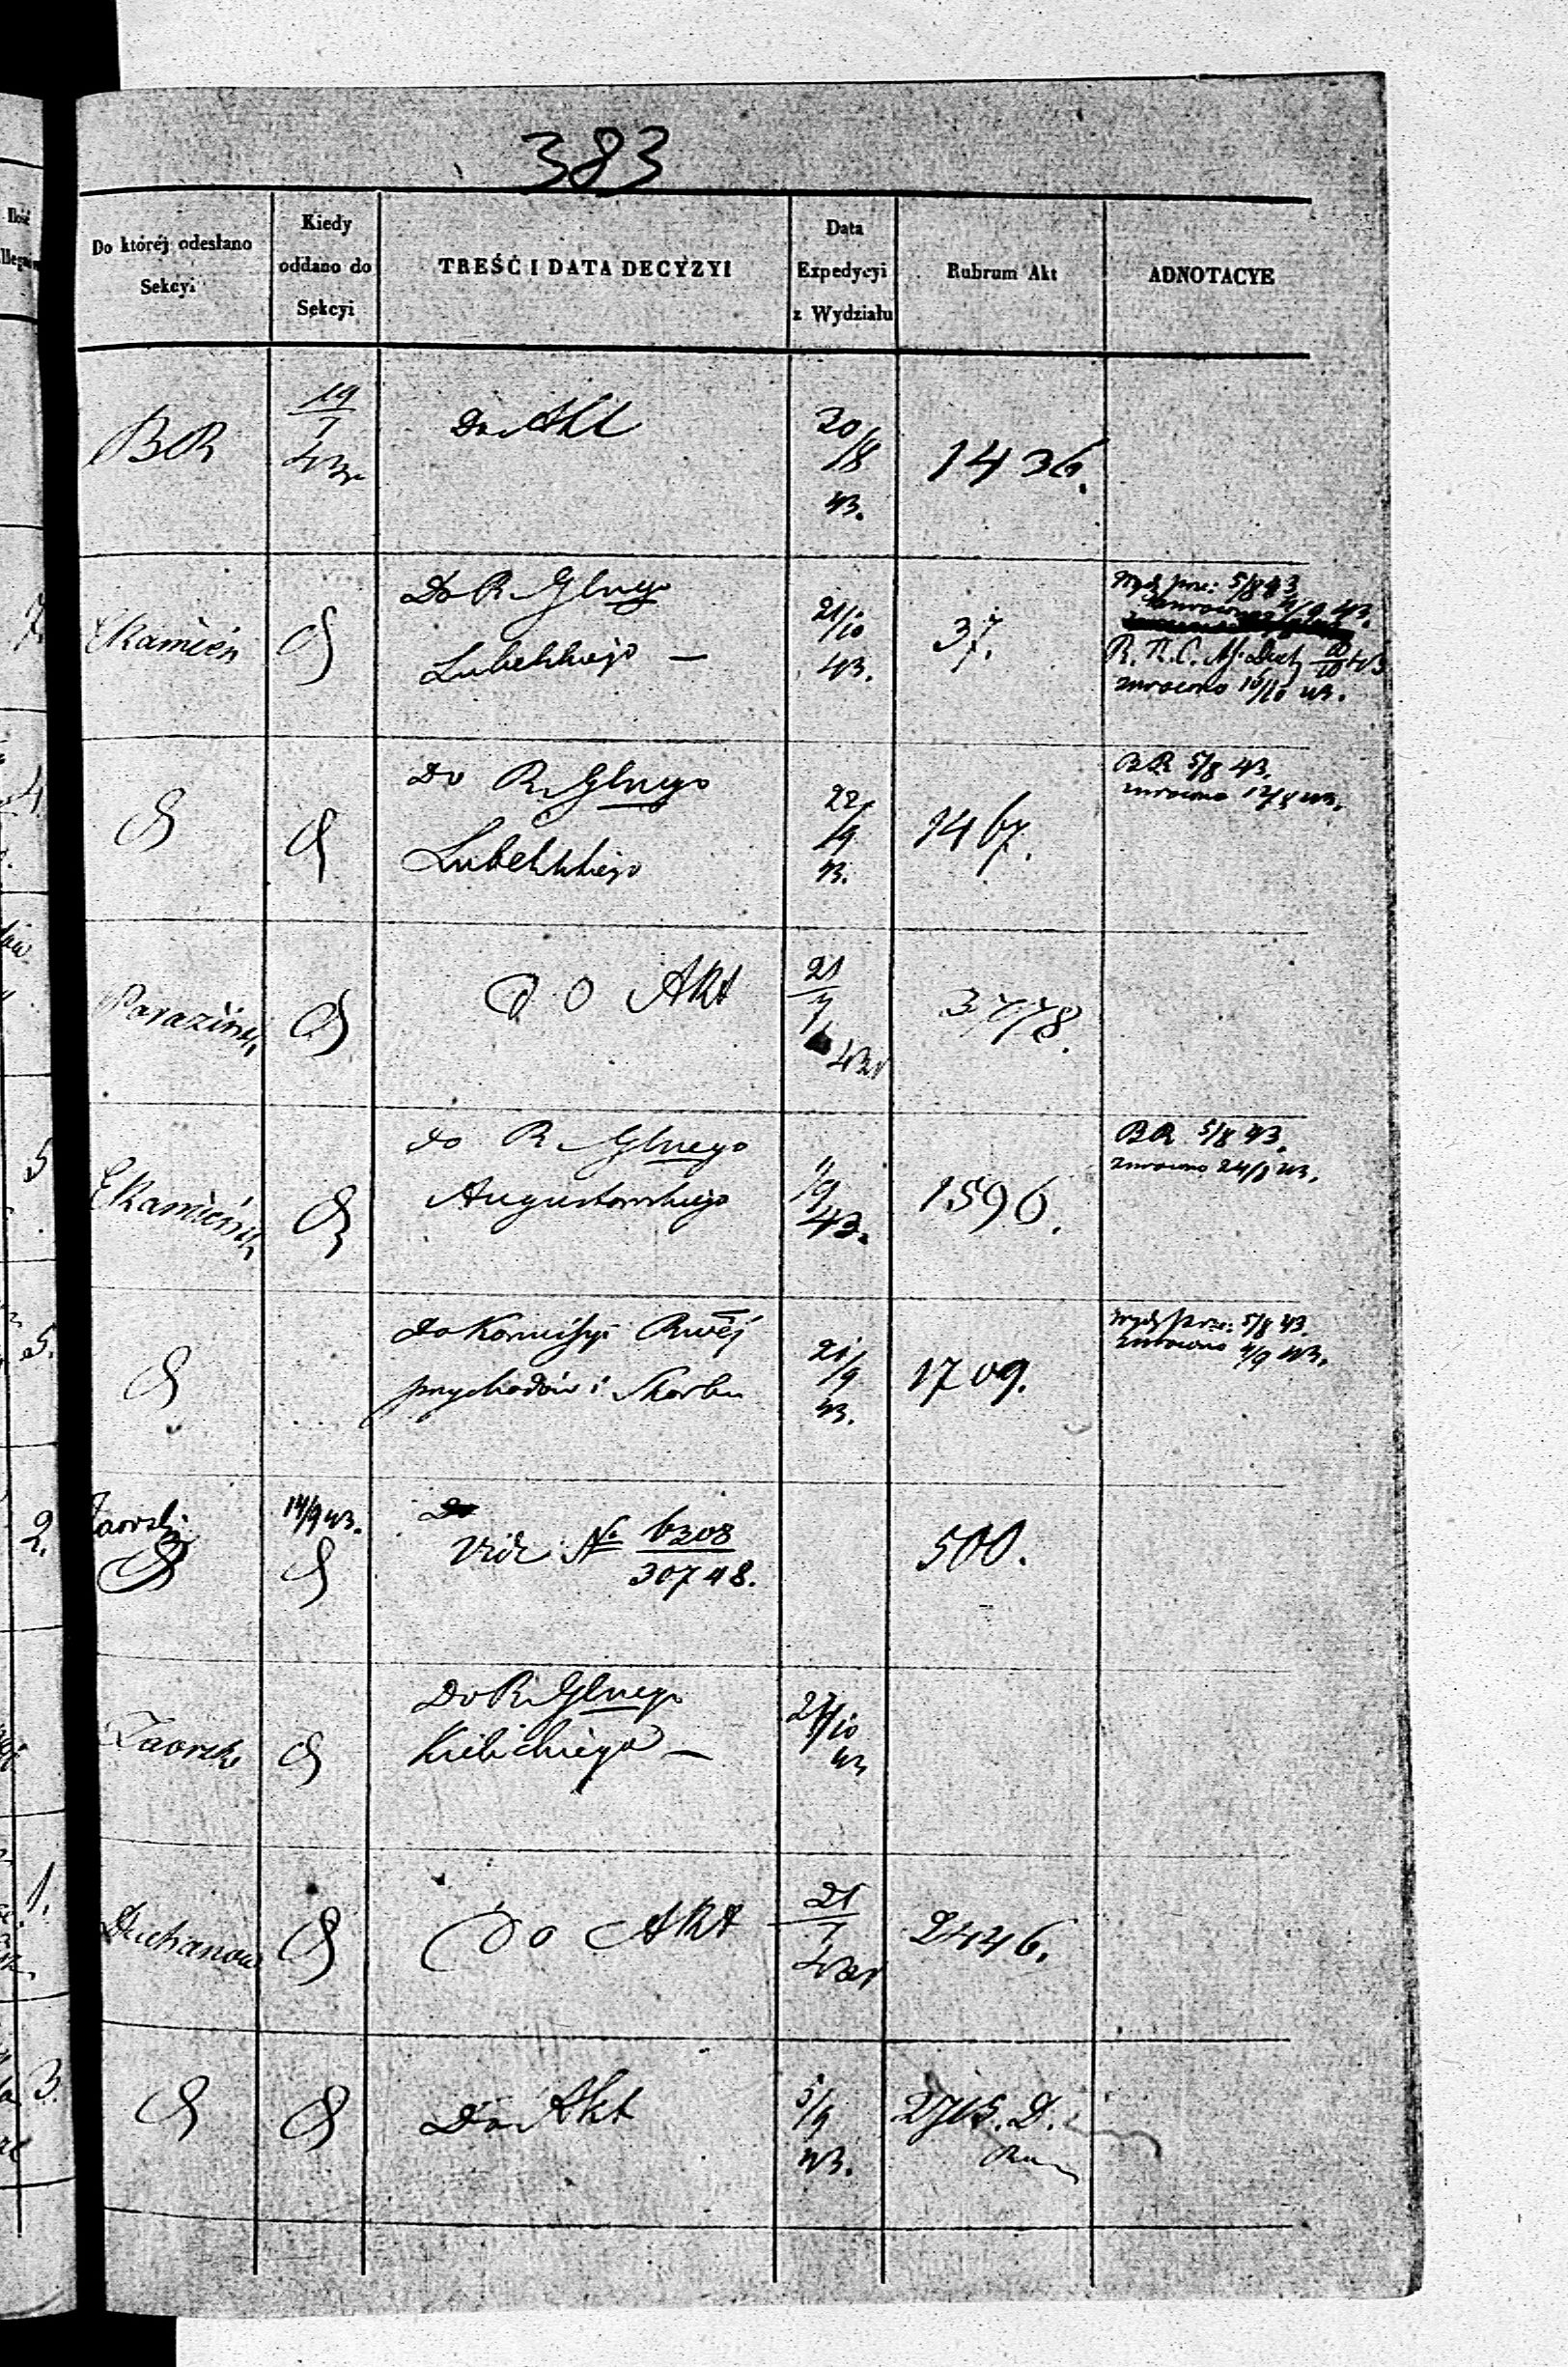 383
Do któréj odesłano
Sekcyi
Kiedy
oddano do
Sekcyi
TREŚĆ I DATA DECYZYI
Data
Expedycyi
z Wydziału
Rubrum Akt
ADNOTACYE
BR
19/7
43
Do Akt
20/8
43.
1436.
EKamień
Do R Glnego
Lubelskiego —
21/10
43.
37.
Wydz prze: 5/8 43.
zwrócono 4/9 43.
R. R. C.
10/10 43
zwrócono 16/10 43.
Do R Glnego
Lubelskiego
22/9
43.
1467.
BR 5/8 43.
zwrócono 12/8 43.
DO Akt
21/7
43
3778.
EKamieńsk
do R Glnego
Augustowskiego
1/9
43.
1596.
BR 5/8 43.
zwrócono 24/8 43.
do Komisyi Rwéj
przychodów i Skarbu
21/9
43.
1709.
Wydz prze: 5/8 43.
zwrócono 4/9 43.
Zaorski
14/9 43.
Do
Vide No 6308
30748.
500.
Zaorski
Do R Glnego
Kieleckiego —
27/10
43
Duchanow
Do Akt
21/7
43
2446.
Do Akt
5/9
43.
2715. D.